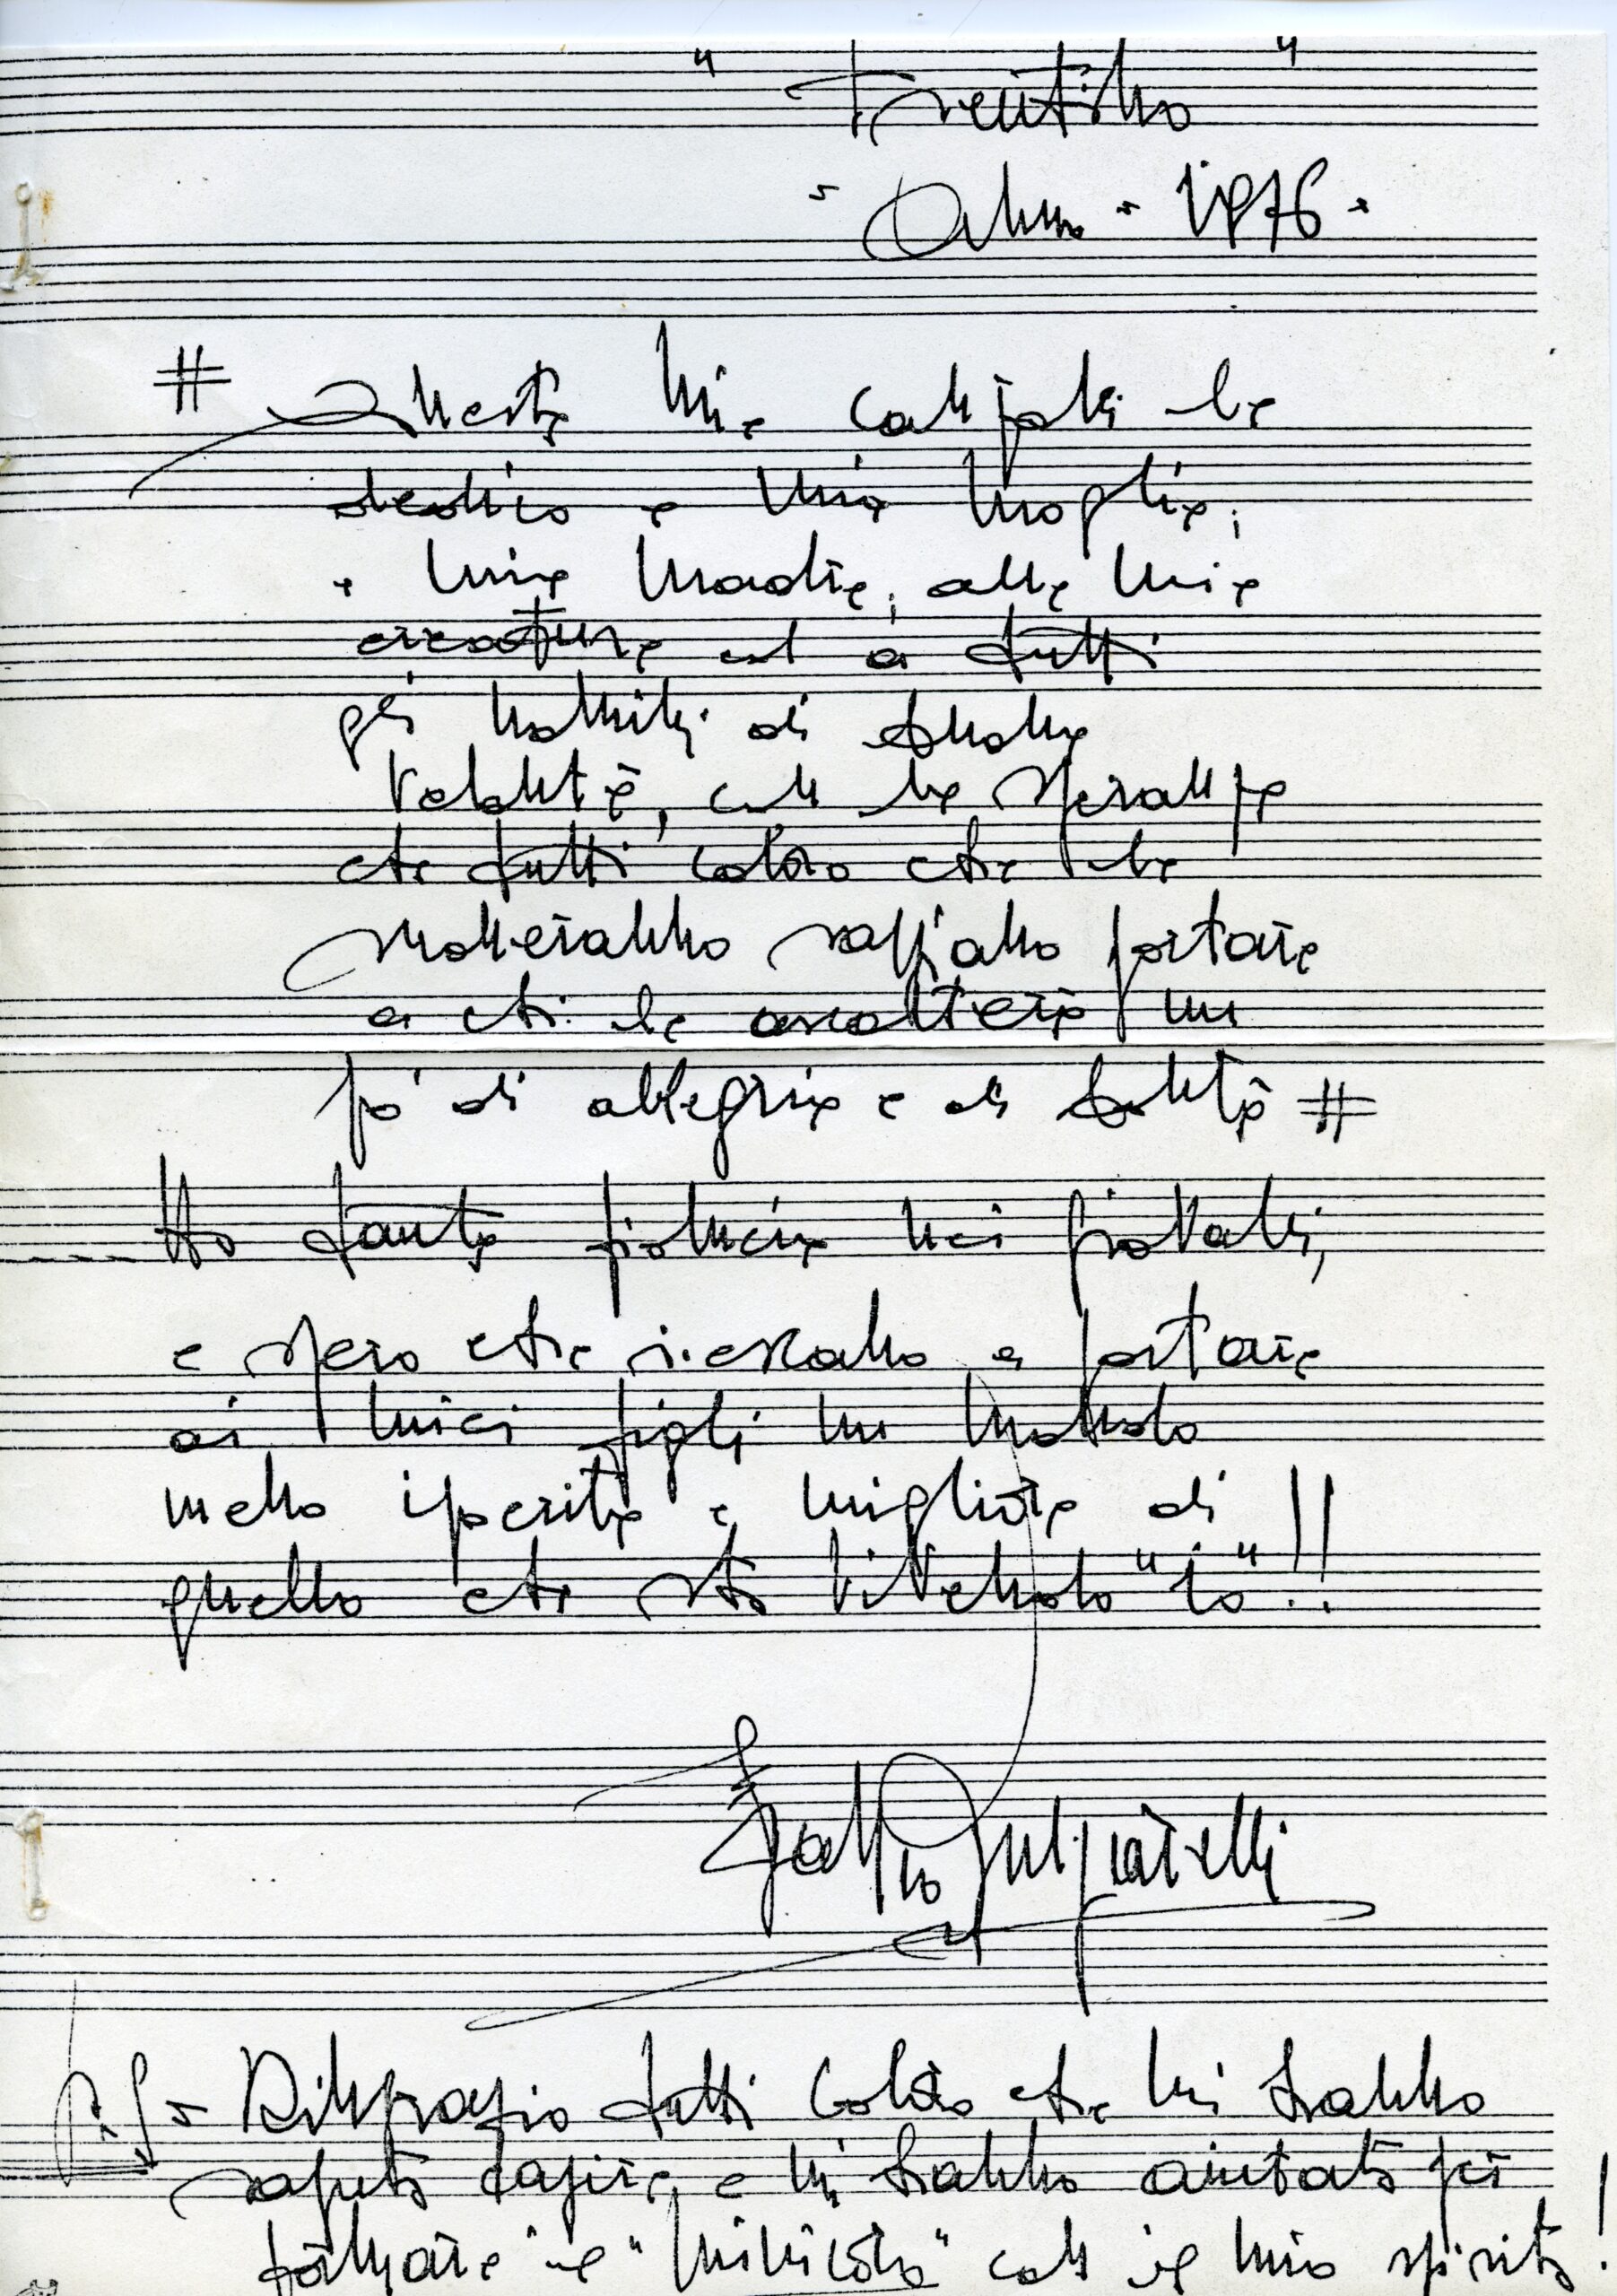 " Trentino "
- Anno - 1976 -
# Questa mia canzoni la
dedico a mia moglie,
a mia madre, alle mie
creature ed a tutti
gli uomini di buona
volontà, con la speranza
che tutti coloro che la
suoneranno sappiano portare
a chi la ascolterà un
pò di allegria e di bontà #
Ho tanta fiducia nei giovani,
e spero che riescano a portare
ai miei figli un mondo
meno ipocrita e migliore di
quello che sto vivendo "io"!!
P.S. - Ringrazio tutti coloro che mi hanno
saputo capire e mi hanno aiutato per
formare il "minicoro" con il mio spirito!